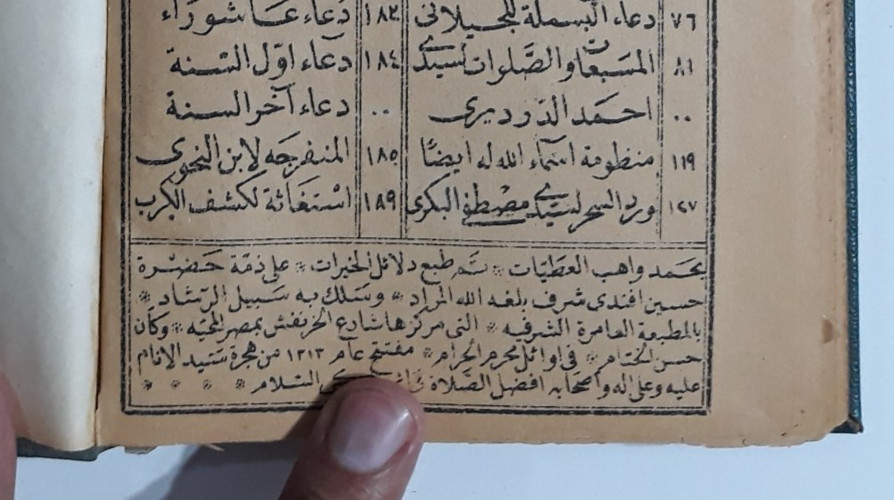 ٧٦ دعاء البسملة للجيلانى ١٨٣ دعاء عاشوراء
٨١ المسبعات والصلوات لسيدى ١٨٤ دعاء اوّل السنة
٠٠ احمد الدرديرى ٠٠ دعاء آخر السنة
١١٩ منظومة اسماء الله له ايضًا ١٨٥ المنفرجه لابن النحوى
١٢٧ ورد السحر لسيدى مصطفى البكرى ١٨٩ استغاثة لكشف الكرب
بحمد واهب العطيّات * تم طبع دلائل الخيرات * على ذمّة حضرة
حسين افندى شرف بلغه الله المراد * وسلك به سبيل الرشاد *
بالمطبعة العامرة الشرفيه * التى مركزها شارع الخرنفش بمصر المحميه * وكان
حسن الختام * فى اوائل محرم الحرام * مفتتح عام ١٣١٣ من هجرة سيد الانام
عليه وعلى اله واصحابه افضل الصلاة السلام * * * *